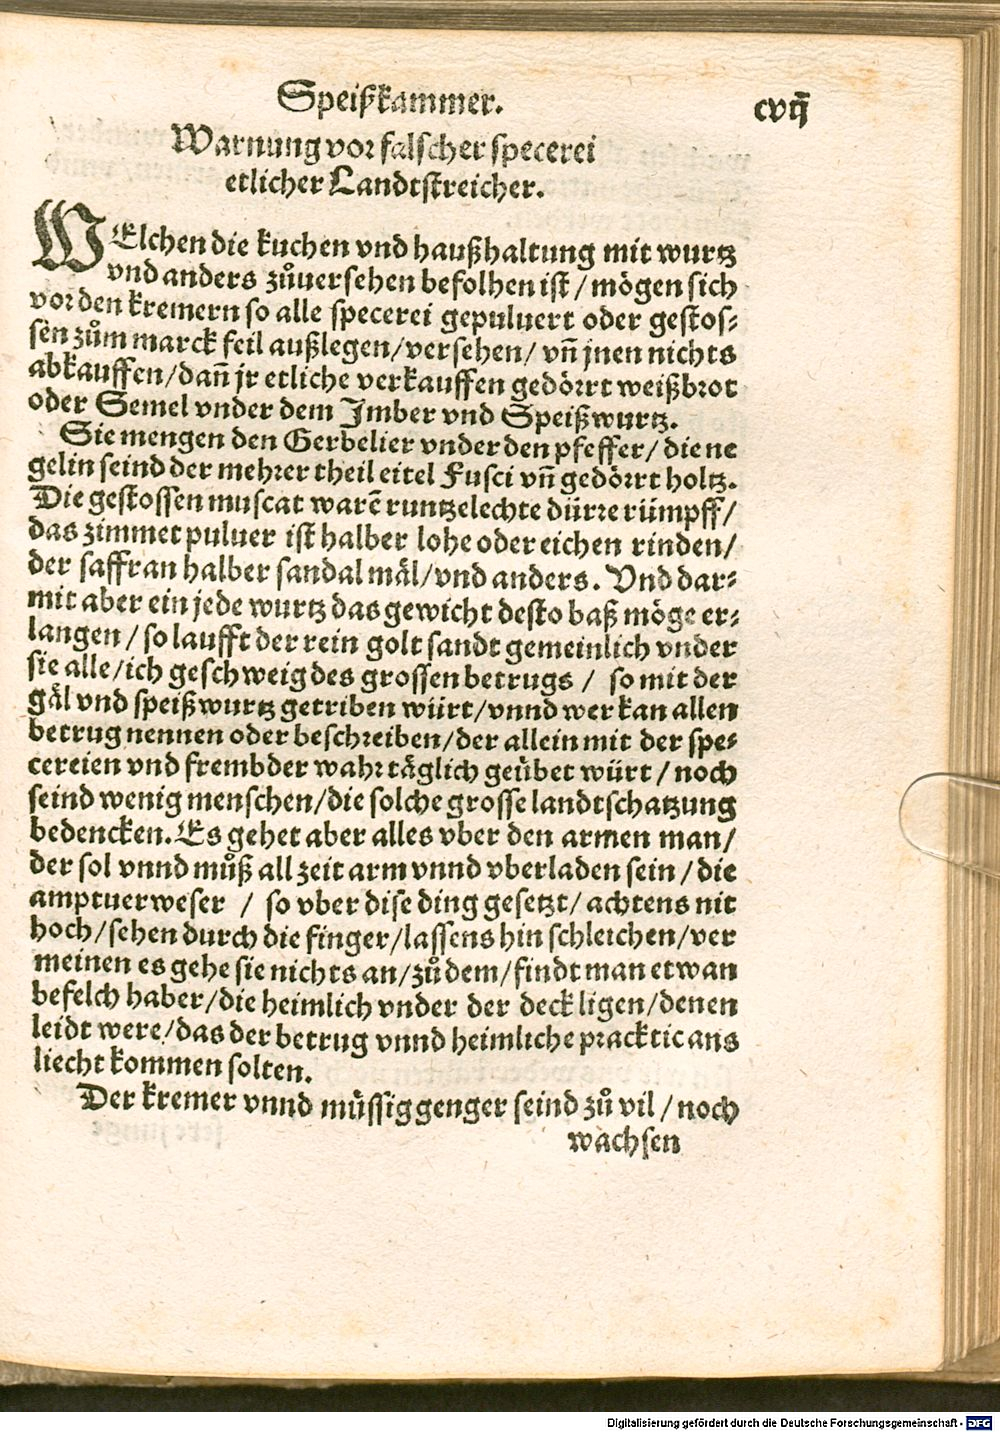 Speißkammer.
cvij
Warnung vor falscher specerei
etlicher Landtstreicher.
WElchen die kuchen vnd haußhaltung mit wurtz
vnd anders zůuersehen befolhen ist / mögen sich
vor den kremern so alle specerei gepuluert oder gestos-
sen zům marck feil außlegen/versehen/ vñ jnen nichts
abkauffen/dañ jr etliche verkauffen gedörrt weißbrot
oder Semel vnder dem Imber vnd Speißwurtz.
Sie mengen den Gerbelier vnder den pfeffer/ die ne
gelin seind der mehrer theil eitel Fusci vñ gedörrt holtz.
Die gestossen muscat warẽ runtzelechte dürre rümpff/
das zimmet puluer ist halber lohe oder eichen rinden/
der saffran halber sandal mäl/vnd anders. Vnd dar-
mit aber ein jede wurtz das gewicht desto baß möge er-
langen / so laufft der rein golt sandt gemeinlich vnder
sie alle/ich geschweig des grossen betrugs / so mit der
gäl vnd speißwurtz getriben würt/vnnd wer kan allen
betrug nennen oder beschreiben/der allein mit der spe-
cereien vnd frembder wahr täglich geübet würt / noch
seind wenig menschen/die solche grosse landtschatzung
bedencken. Es gehet aber alles vber den armen man/
der sol vnnd můß all zeit arm vnnd vberladen sein / die
amptuerweser / so vber dise ding gesetzt/ achtens nit
hoch/sehen durch die finger/lassens hin schleichen/ver
meinen es gehe sie nichts an/zůdem/findt man etwan
befelch haber/die heimlich vnder der deck ligen/denen
leidt were/das der betrug vnnd heimliche pracktic ans
liecht kommen solten.
Der kremer vnnd müssiggenger seind zů vil / noch
wachsen
Digitalisierung gefördert durch die Deutsche Forschungsgemeinschaft - DFG